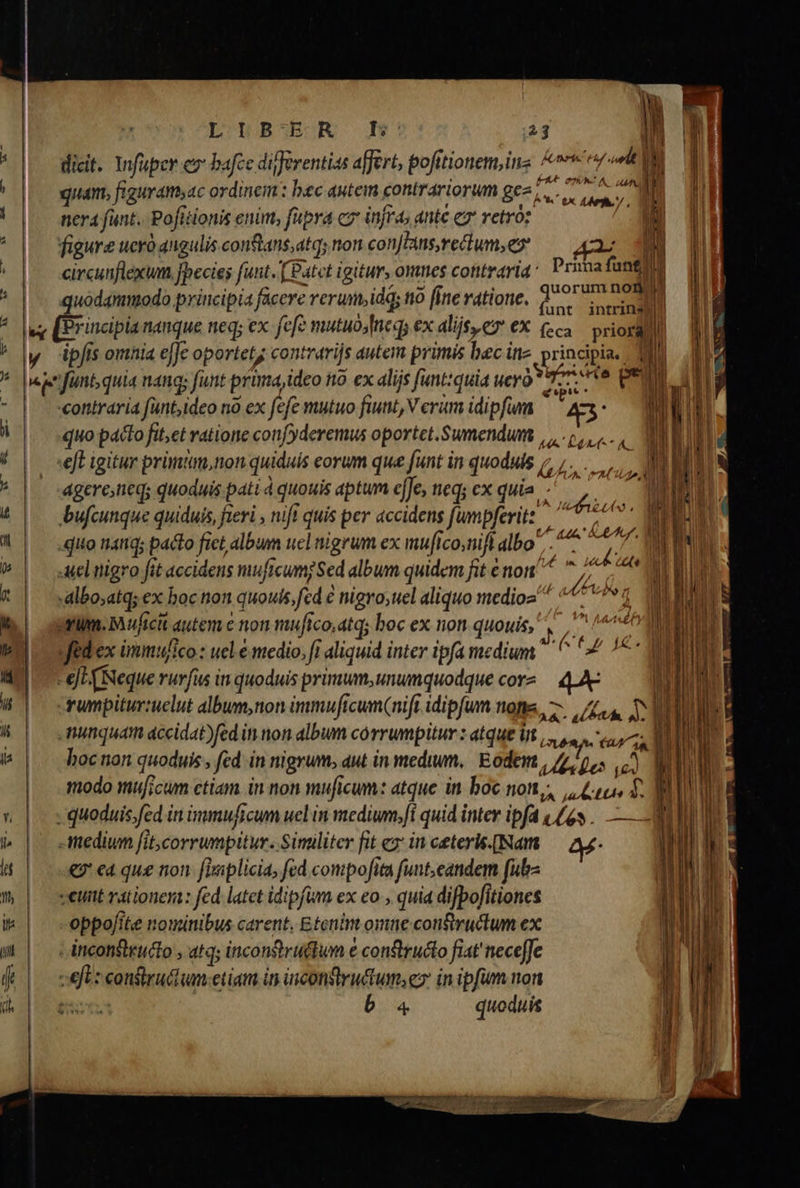 LIBER I. 23
dicit. Insuper et hasce differentias affert, positionem, in=
quam, figuram, ac ordinem: hæc autem contrariorum ge=
nera sunt. Positionis enim, supra et infra, ante et retrò:
figuræ uerò angulis constans, atq; non constans, rectum, et
circunflexum species sunt. (Patet igitur, omnes contraria
quodammodo principia facere rerum, idq; nō sine ratione.
(Principia nanque neq; ex sese mutuò, neq; ex alijs, et ex
ipsis omnia esse oportet, contrarijs autem primis hæc in=
sunt, quia nanq; sunt prima, ideo nō ex alijs sunt: quia uerò
contraria sunt, ideo nō ex sese mutuo fiunt, Verum idipsum
quo pacto fit, et ratione consyderemus oportet. Sumendum
est igitur primùm, non quiduis eorum quæ sunt in quoduis
agere, neq; quoduis pati à quouis aptum esse, neq; ex qui=
buscunque quiduis, fieri, nisi quis per accidens sumpserit:
quo nanq; pacto fiet album uel nigrum ex musico, nisi albo
uel nigro sit accidens musicum? Sed album quidem fit è non
albo, atq; ex hoc non quouis, sed è nigro, uel aliquo medio=
rum. Musicū autem è non musico, atq; hoc ex non quouis,
sed ex immusico: uel è medio, si aliquid inter ipsa medium
est. (Neque rursus in quoduis primum, unumquodque cor=
rumpitur: uelut album, non immusicum (nisi idipsum non=
nunquam accidat) sed in non album corrumpitur: atque in
hoc non quoduis, sed in nigrum, aut in medium. Eodem
modo musicum etiam in non musicum: atque in hoc non
quoduis, sed in immusicum uel in medium, si quid inter ipsa
medium sit, corrumpitur. Similiter fit et in cæteris. (Nam
et ea quæ non simplicia, sed composita sunt, eandem sub=
eunt rationem: sed latet idipsum ex eo, quia dispositiones
oppositæ nominibus carent. Etenim omne constructum ex
inconstructo, atq; inconstructum è constructo fiat necesse
est: constructum etiam in inconstructum, et in ipsum non
b 4 quoduis
42.
Prima sunt
quorum non
sunt intrin=
seca priora
principia.
43.
44
45.